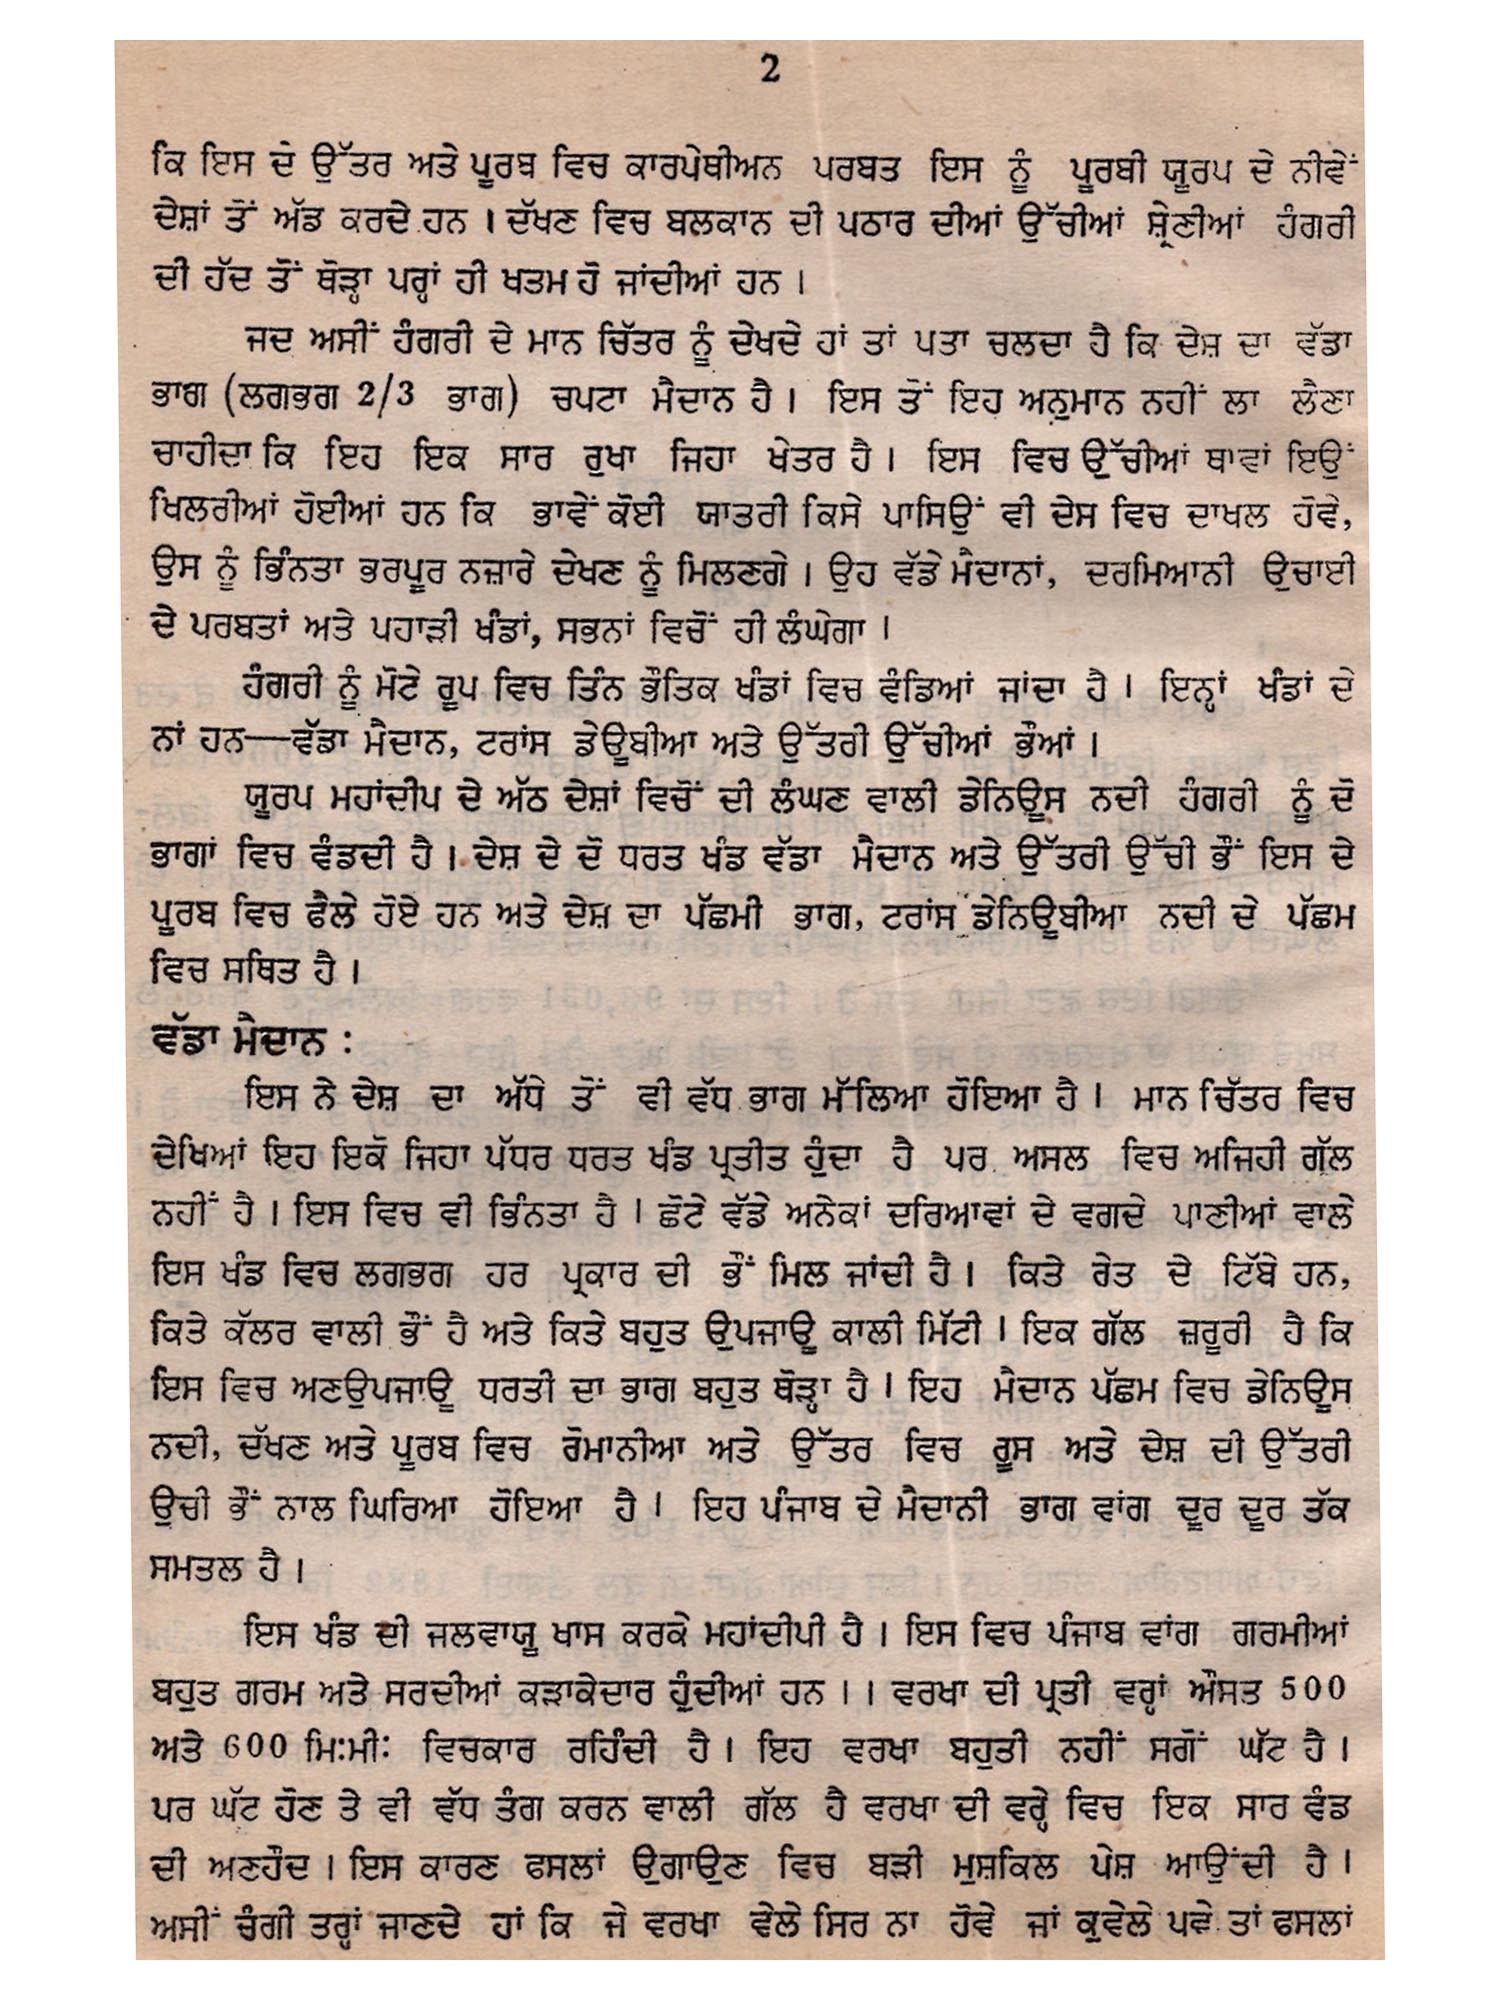 2
ਕਿ ਇਸ ਦੇ ਉੱਤਰ ਅਤੇ ਪੂਰਬ ਵਿਚ ਕਾਰਪੇਥੀਅਨ ਪਰਬਤ ਇਸ ਨੂੰ ਪੂਰਬੀ ਯੂਰਪ ਦੇ ਨੀਵੇਂ
ਦੇਸ਼ਾਂ ਤੋਂ ਅੱਡ ਕਰਦੇ ਹਨ । ਦੱਖਣ ਵਿਚ ਬਲਕਾਨ ਦੀ ਪਠਾਰ ਦੀਆਂ ਉੱਚੀਆਂ ਸ਼੍ਰੇਣੀਆਂ ਹੰਗਰੀ
ਦੀ ਹੱਦ ਤੋਂ ਥੋੜ੍ਹਾ ਪਰ੍ਹਾਂ ਹੀ ਖਤਮ ਹੋ ਜਾਂਦੀਆਂ ਹਨ ।
ਜਦ ਅਸੀਂ ਹੰਗਰੀ ਦੇ ਮਾਨ ਚਿੱਤਰ ਨੂੰ ਦੇਖਦੇ ਹਾਂ ਤਾਂ ਪਤਾ ਚਲਦਾ ਹੈ ਕਿ ਦੇਸ਼ ਦਾ ਵੱਡਾ
ਭਾਗ (ਲਗਭਗ 2/3 ਭਾਗ) ਚਪਟਾ ਮੈਦਾਨ ਹੈ । ਇਸ ਤੋਂ ਇਹ ਅਨੁਮਾਨ ਨਹੀਂ ਲਾ ਲੈਣਾ
ਚਾਹੀਦਾ ਕਿ ਇਹ ਇਕ ਸਾਰ ਰੁਖਾ ਜਿਹਾ ਖੇਤਰ ਹੈ । ਇਸ ਵਿਚ ਉੱਚੀਆਂ ਥਾਵਾਂ ਇਉਂ
ਖਿਲਰੀਆਂ ਹੋਈਆਂ ਹਨ ਕਿ ਭਾਵੇਂ ਕੋਈ ਯਾਤਰੀ ਕਿਸੇ ਪਾਸਿਉਂ ਵੀ ਦੇਸ ਵਿਚ ਦਾਖਲ ਹੋਵੇ,
ਉਸ ਨੂੰ ਭਿੰਨਤਾ ਭਰਪੂਰ ਨਜ਼ਾਰੇ ਦੇਖਣ ਨੂੰ ਮਿਲਣਗੇ । ਉਹ ਵੱਡੇ ਮੈਦਾਨਾਂ, ਦਰਮਿਆਨੀ ਉਚਾਈ
ਦੇ ਪਰਬਤਾਂ ਅਤੇ ਪਹਾੜੀ ਖੰਡਾਂ, ਸਭਨਾਂ ਵਿਚੋਂ ਹੀ ਲੰਘੇਗਾ ।
ਹੰਗਰੀ ਨੂੰ ਮੋਟੇ ਰੂਪ ਵਿਚ ਤਿੰਨ ਭੌਤਿਕ ਖੰਡਾਂ ਵਿਚ ਵੰਡਿਆਂ ਜਾਂਦਾ ਹੈ । ਇਨ੍ਹਾਂ ਖੰਡਾਂ ਦੇ
ਨਾਂ ਹਨ—ਵੱਡਾ ਮੈਦਾਨ, ਟਰਾਂਸ ਡੇਊਬੀਆ ਅਤੇ ਉੱਤਰੀ ਉੱਚੀਆਂ ਭੌਆਂ ।
ਯੂਰਪ ਮਹਾਂਦੀਪ ਦੇ ਅੱਠ ਦੇਸ਼ਾਂ ਵਿਚੋਂ ਦੀ ਲੰਘਣ ਵਾਲੀ ਡੇਨਿਊਸ ਨਦੀ ਹੰਗਰੀ ਨੂੰ ਦੋ
ਭਾਗਾਂ ਵਿਚ ਵੰਡਦੀ ਹੈ । ਦੇਸ਼ ਦੇ ਦੋ ਧਰਤ ਖੰਡ ਵੱਡਾ ਮੈਦਾਨ ਅਤੇ ਉੱਤਰੀ ਉੱਚੀ ਭੌਂ ਇਸ ਦੇ
ਪੂਰਬ ਵਿਚ ਫੈਲੇ ਹੋਏ ਹਨ ਅਤੇ ਦੇਸ਼ ਦਾ ਪੱਛਮੀ ਭਾਗ, ਟਰਾਂਸ ਡੇਨਿਊਬੀਆ ਨਦੀ ਦੇ ਪੱਛਮ
ਵਿਚ ਸਥਿਤ ਹੈ ।
ਵੱਡਾ ਮੈਦਾਨ :
ਇਸ ਨੇ ਦੇਸ਼ ਦਾ ਅੱਧੇ ਤੋਂ ਵੀ ਵੱਧ ਭਾਗ ਮੱਲਿਆ ਹੋਇਆ ਹੈ । ਮਾਨ ਚਿੱਤਰ ਵਿਚ
ਦੇਖਿਆਂ ਇਹ ਇਕੋ ਜਿਹਾ ਪੱਧਰ ਧਰਤ ਖੰਡ ਪ੍ਰਤੀਤ ਹੁੰਦਾ ਹੈ ਪਰ ਅਸਲ ਵਿਚ ਅਜਿਹੀ ਗੱਲ
ਨਹੀਂ ਹੈ । ਇਸ ਵਿਚ ਵੀ ਭਿੰਨਤਾ ਹੈ । ਛੋਟੇ ਵੱਡੇ ਅਨੇਕਾਂ ਦਰਿਆਵਾਂ ਦੇ ਵਗਦੇ ਪਾਣੀਆਂ ਵਾਲੇ
ਇਸ ਖੰਡ ਵਿਚ ਲਗਭਗ ਹਰ ਪ੍ਰਕਾਰ ਦੀ ਭੌਂ ਮਿਲ ਜਾਂਦੀ ਹੈ । ਕਿਤੇ ਰੇਤ ਦੇ ਟਿੱਬੇ ਹਨ,
ਕਿਤੇ ਕੱਲਰ ਵਾਲੀ ਭੌਂ ਹੈ ਅਤੇ ਕਿਤੇ ਬਹੁਤ ਉਪਜਾਊ ਕਾਲੀ ਮਿੱਟੀ । ਇਕ ਗੱਲ ਜ਼ਰੂਰੀ ਹੈ ਕਿ
ਇਸ ਵਿਚ ਅਣਉਪਜਾਊ ਧਰਤੀ ਦਾ ਭਾਗ ਬਹੁਤ ਥੋੜ੍ਹਾ ਹੈ । ਇਹ ਮੈਦਾਨ ਪੱਛਮ ਵਿਚ ਡੇਨਿਊਸ
ਨਦੀ, ਦੱਖਣ ਅਤੇ ਪੂਰਬ ਵਿਚ ਰੋਮਾਨੀਆ ਅਤੇ ਉੱਤਰ ਵਿਚ ਰੂਸ ਅਤੇ ਦੇਸ਼ ਦੀ ਉੱਤਰੀ
ਉਚੀ ਭੌਂ ਨਾਲ ਘਿਰਿਆ ਹੋਇਆ ਹੈ । ਇਹ ਪੰਜਾਬ ਦੇ ਮੈਦਾਨੀ ਭਾਗ ਵਾਂਗ ਦੂਰ ਦੂਰ ਤੱਕ
ਸਮਤਲ ਹੈ ।
ਇਸ ਖੰਡ ਦੀ ਜਲਵਾਯੂ ਖਾਸ ਕਰਕੇ ਮਹਾਂਦੀਪੀ ਹੈ । ਇਸ ਵਿਚ ਪੰਜਾਬ ਵਾਂਗ ਗਰਮੀਆਂ
ਬਹੁਤ ਗਰਮ ਅਤੇ ਸਰਦੀਆਂ ਕੜਾਕੇਦਾਰ ਹੁੰਦੀਆਂ ਹਨ । । ਵਰਖਾ ਦੀ ਪ੍ਰਤੀ ਵਰ੍ਹਾਂ ਔਸਤ 500
ਅਤੇ 600 ਮਿ:ਮੀ: ਵਿਚਕਾਰ ਰਹਿੰਦੀ ਹੈ । ਇਹ ਵਰਖਾ ਬਹੁਤੀ ਨਹੀਂ ਸਗੋਂ ਘੱਟ ਹੈ ।
ਪਰ ਘੱਟ ਹੋਣ ਤੇ ਵੀ ਵੱਧ ਤੰਗ ਕਰਨ ਵਾਲੀ ਗੱਲ ਹੈ ਵਰਖਾ ਦੀ ਵਰ੍ਹੇ ਵਿਚ ਇਕ ਸਾਰ ਵੰਡ
ਦੀ ਅਣਹੋਦ । ਇਸ ਕਾਰਣ ਫਸਲਾਂ ਉਗਾਉਣ ਵਿਚ ਬੜੀ ਮੁਸ਼ਕਿਲ ਪੇਸ਼ ਆਉਂਦੀ ਹੈ ।
ਅਸੀਂ ਚੰਗੀ ਤਰ੍ਹਾਂ ਜਾਣਦੇ ਹਾਂ ਕਿ ਜੇ ਵਰਖਾ ਵੇਲੇ ਸਿਰ ਨਾ ਹੋਵੇ ਜਾਂ ਕੁਵੇਲੇ ਪਵੇ ਤਾਂ ਫਸਲਾਂ